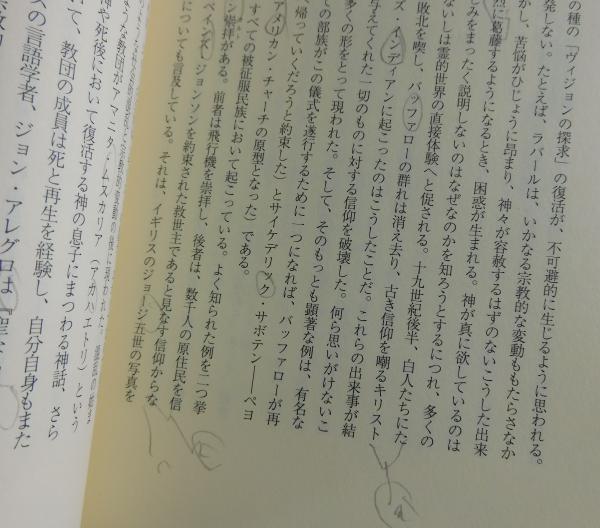 の種の「ヴィジョンの探求」の復活が、不可避的に生じるように思われる。
発しない。たとえば、ラバールは、いかなる宗教的な変動ももたらさなか
かし、苦悩がひじょうに昂まり、神々が容赦するはずのないこうした出来
烈に葛藤するようになるとき、困惑が生まれる。神が真に欲しているのは
しみをまったく説明しないのはなぜなのかを知ろうとするにつれ、多くの
ないしは霊的世界の直接体験へと促される。十九世紀後半、白人たちにた
敗北を喫し、バッファローの群れは消え去り、古き信仰を嘲るキリスト
ズ・インディアンに起こったのはこうしたことだ。これらの出来事が結
与えてくれた一切のものに対する信仰を破壊した。何ら思いがけないこ
多くの形をとって現われた。そして、そのもっとも顕著な例は、有名な
ての部族がこの儀式を遂行するために一つになれば、バッファローが再
帰っていくだろうと約束した）とサイケデリック・サボテン——ペヨ
アメリカン・チャーチの原型となった）である。
すべての被征服民族において起こっている。よく知られた例を二つ挙
ン崇拝がある。前者は飛行機を崇拝し、後者は、数千人の原住民を信
ジョンソンを約束された救世主であると見なす信仰からな
についても言及している。それは、イギリスのジョージ五世の写真を
ような教団がアマニタ・ムスカリア（アカハエトリ）という
や死後において復活する神の息子にまつわる神話、さら
て、教団の成員は死と再生を経験し、自分自身もまた
スの言語学者、ジョン・アレグロは『聖